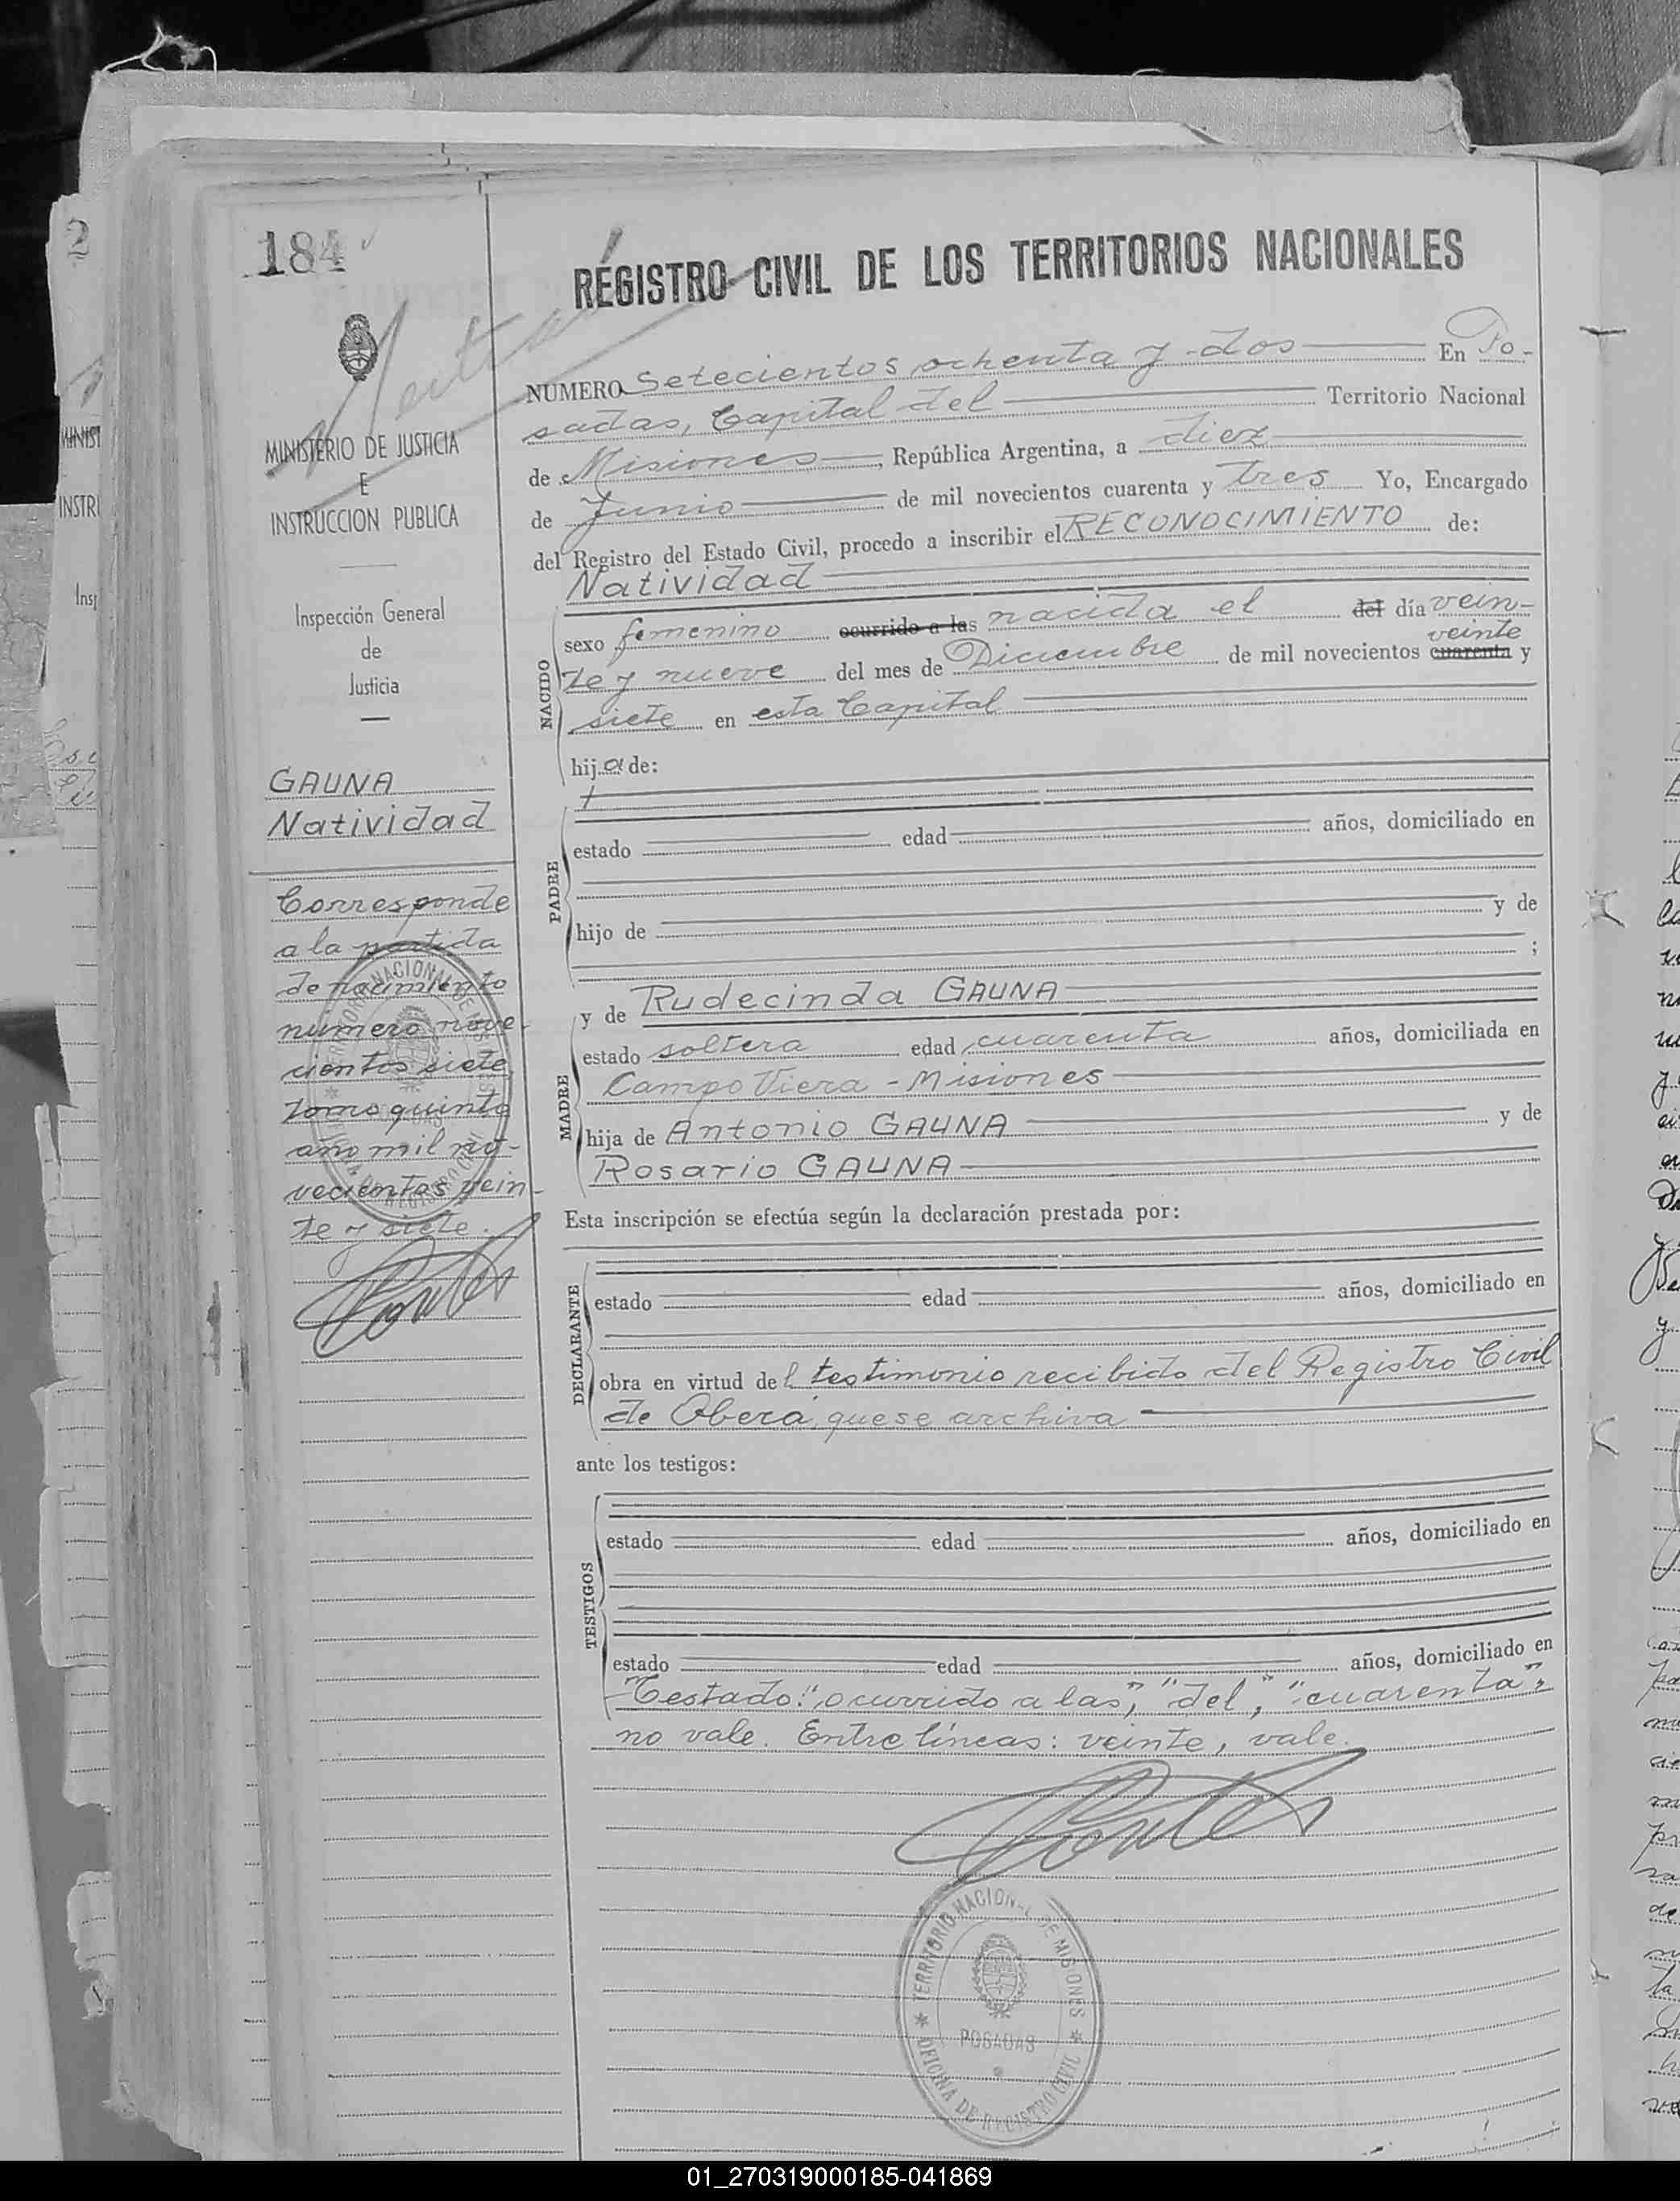 184
REGISTRO CIVIL DE LOS TERRITORIOS NACIONALES
MINISTERIO DE JUSTICIA
E
INSTRUCCION PUBLICA
Inspección General
de
Justicia
GAUNA
Natividad
Corresponde
a la partida
de nacimiento
numero nove-
cientos siete
tomo quinto
año mil no-
vecientos vein-
te y siete.
NUMERO Setecientos ochenta y dos En Po-
sadas, Capital del Territorio Nacional
de Misiones, República Argentina, a diez
de Junio de mil novecientos cuarenta y tres Yo, Encargado
del Registro del Estado Civil, procedo a inscribir el RECONOCIMIENTO de:
Natividad
NACIDO
sexo femenino ocurrido a las nacida el del día vein-
veinte
te y nueve del mes de Diciembre de mil novecientos cuarenta y
siete en esta Capital
hija de:
PADRE
estado edad años, domiciliado en
hijo de y de
;
MADRE
y de Rudecinda GAUNA
estado soltera edad cuarenta años, domiciliada en
Campo Viera - Misiones
hija de Antonio GAUNA y de
Rosario GAUNA
Esta inscripción se efectúa según la declaración prestada por:
DECLARANTE
estado edad años, domiciliado en
obra en virtud del testimonio recibido del Registro Civil
de Oberá, que se archiva
ante los testigos:
TESTIGOS
estado edad años, domiciliado en
estado edad años, domiciliado en
Testado: "ocurrido a las", "del", "cuarenta",
no vale. Entre líneas: veinte, vale.
TERRITORIO NACIONAL DE MISIONES
POSADAS
OFICINA DE REGISTRO CIVIL
01_270319000185-041869